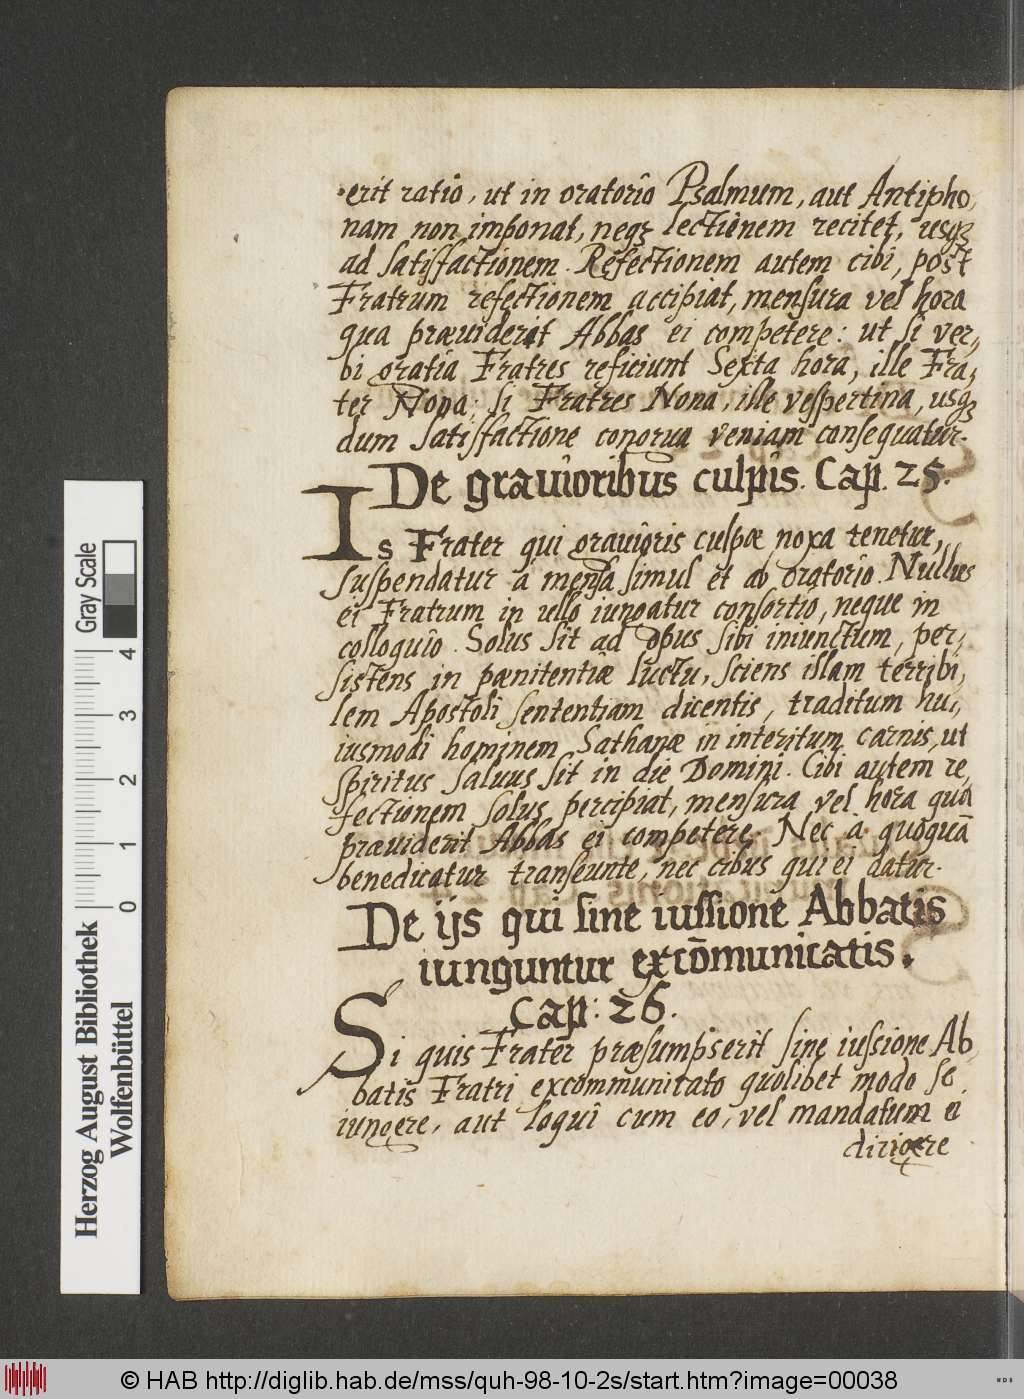 erit ratio, ut in oratorio Psalmum, aut Antipho,
nam non imponat, neqȝ lectionem recitet, usqȝ
ad satisfactionem. Refectionem autem cibi, post
Fratrum refectionem accipiat, mensura vel hora
qua præuiderit Abbas ei competere: ut si ver,,
bi gratia Fratres reficiunt Sexta hora, ille Fra,
ter Nona; si Fratres Nona, ille vespertina, usqȝ
dum satisfactione congrua veniam consequatur.
De grauioribus culpis. Cap. 25.
Is Frater qui grauioris culpæ noxa tenetur,
suspendatur à mensa simul et ab oratorio. Nullus
ei Fratrum in ullo iungatur consortio, neque in
colloquio. Solus sit ad opus sibi iniunctum, per,
sistens in pœnitentiæ luctu, sciens illam terribi,
lem Apostoli sententiam dicentis, traditum hu,,
iusmodi hominem Sathanæ in interitum carnis, ut
spiritus saluus sit in die Domini. Cibi autem re,
fectionem solus percipiat, mensura vel hora qua
præuiderit Abbas ei competere. Nec à quoquā
benedicatur transeunte, nec cibus qui ei datur.
De ijs qui sine iussione Abbatis
iunguntur excōmunicatis.
Cap: 26.
Si quis Frater præsumpserit sine iussione Ab,
batis Fratri excommunicato quolibet modo se
iungere, aut loqui cum eo, vel mandatum ei
dirigere
Gray Scale
4
3
2
1
0
Herzog August Bibliothek
Wolfenbüttel
© HAB http://diglib.hab.de/mss/quh-98-10-2s/start.htm?image=00038